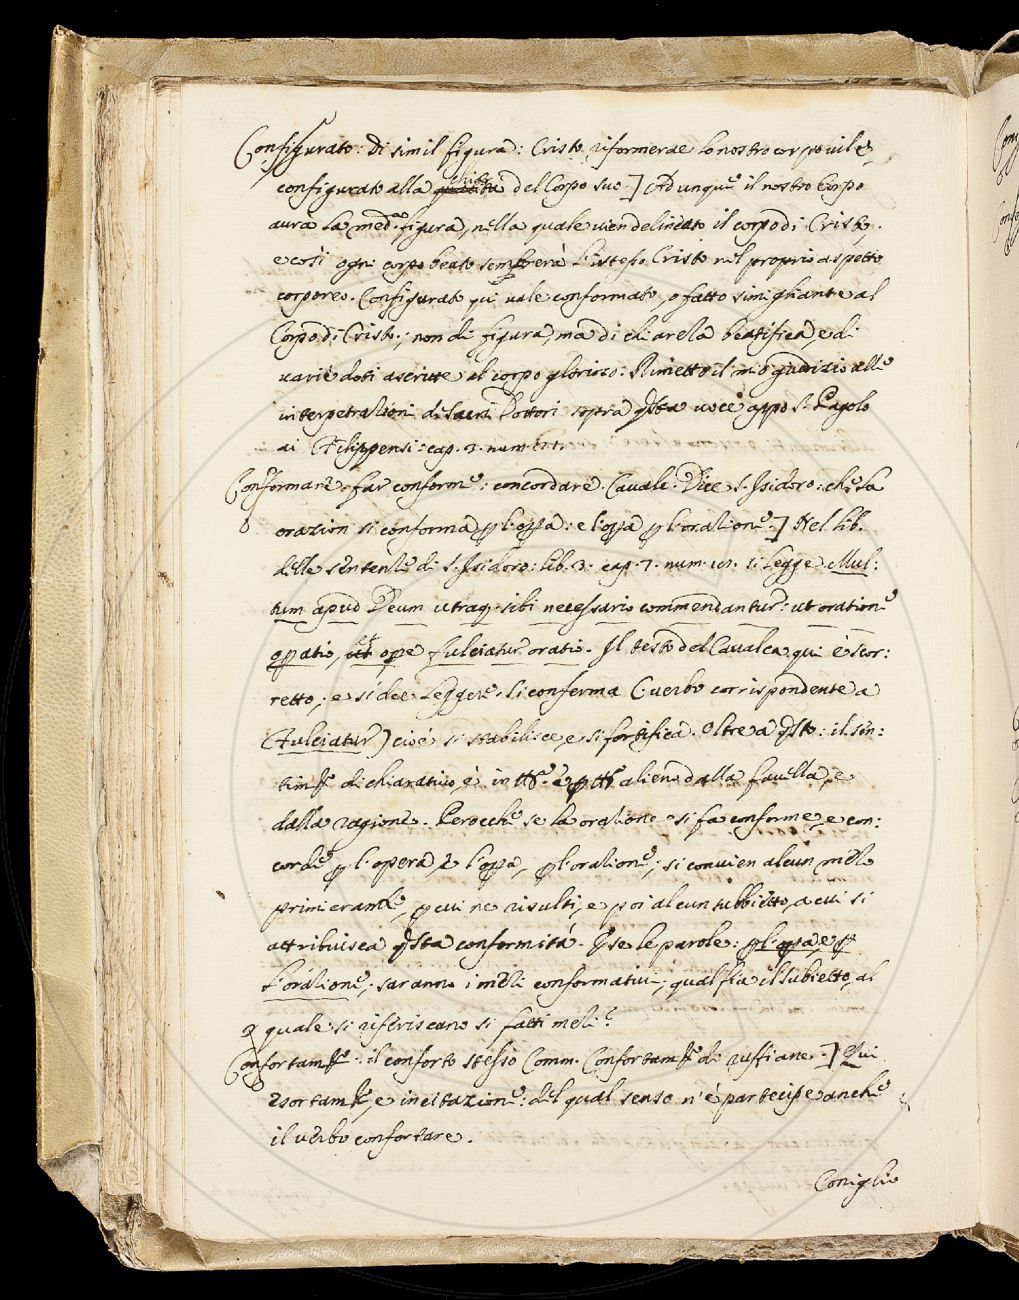 Configurato: di simil figura: Cristo riformerae lo nostro corpo vile,
configurato alla chiarità del Corpo suo.] Adunque il nostro Corpo
aurà la med.ma figura, nella quale vien delineato il corpo di Cristo,
e così ogni corpo beato sembrerà l'istesso Cristo nel proprio aspetto
corporeo. Configurato qui vale conformato, o fatto simigliante al
Corpo di Cristo; non di figura, ma di chiarezza beatifica, e di
varie doti ascritte al corpo glorioso. Rimetto il mio giudizio alle
interpetrazioni di sacri Dottori sopra qsta voce appo S. Pagolo
ai Filippensi: cap. 3. num. 21.
Conformare. far conforme: concordare. Cavalc. Dice S. Isidoro: che la
orazion si conforma p l'oppa: e l'oppa p l'orazione.] Nel lib.
delle sentenze di S. Isidoro: lib. 3. cap. 7. num. si legge Mul:
tum apud Deum utraq. sibi necessario commendantur: ut oratione
opatio, et ope fulciatur oratio. Il testo del Cavalca qui è scor:
retto; e si dee leggere. si conferma (verbo corrispondente a
Fulciatur) cioè si stabilisce, e si fortifica. Oltre a qsto: il sen:
tim.to dichiarativo, è in tt.o e p tt.o alieno dalla favella, e
dalla ragione. Perocche se la orazione si fa conforme, e con:
corde p l'opera, e l'oppa, p l'orazione; si convien alcun mezzo
primieram.te, p cui ne risulti, e poi alcun subbietto, a cui si
attribuisca qsta conformità. Or se le parole: p l'oppa, e p
l'orazione; saranno i mezzi conformativi; qual fia il subietto, al
quale si riferiscano si fatti mezi?
Confortam.to: il conforto stesso Comm. Confortam.to di ruffiane.] Qui
Esortam.to, e incitazione: del qual senso n'è partecipe anche
il verbo confortare.
Coniglio